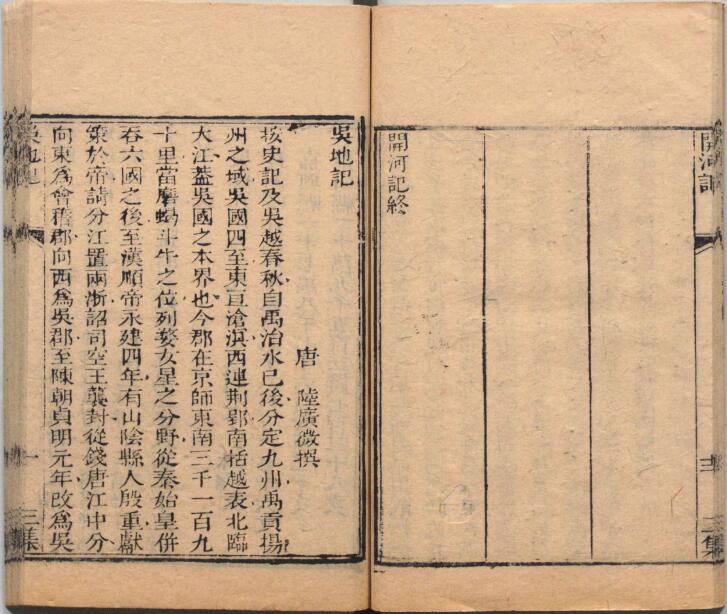 開河記
三集
開河記終
吳地記
唐 陸廣微撰
按史記及吳越春秋自禹治水已後分定九州禹貢揚
州之域吳國四至東亘滄溟西連荆郢南括越表北臨
大江蓋吳國之本界也今郡在京師東南三千一百九
十里當磨蝎斗牛之位列婺女星之分野從秦始皇併
吞六國之後至漢順帝永建四年有山陰縣人殷重獻
策於帝請分江置兩浙詔司空王龔封從錢唐江中分
向東爲會稽郡向西爲吳郡至陳朝貞明元年改爲吳
吳地記
一
三集